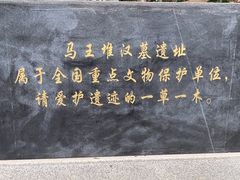 马王堆汉墓遗址
属于全国重点文物保护单位，
请爱护遗迹的一草一木。